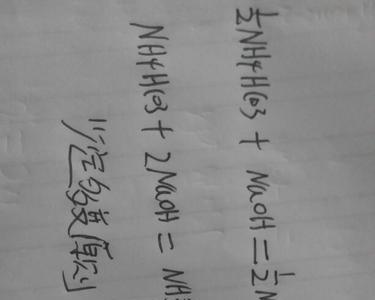 ½NH4HCO3 + NaOH = ½N
NH4HCO3 + 2NaOH = NH3
定 原则